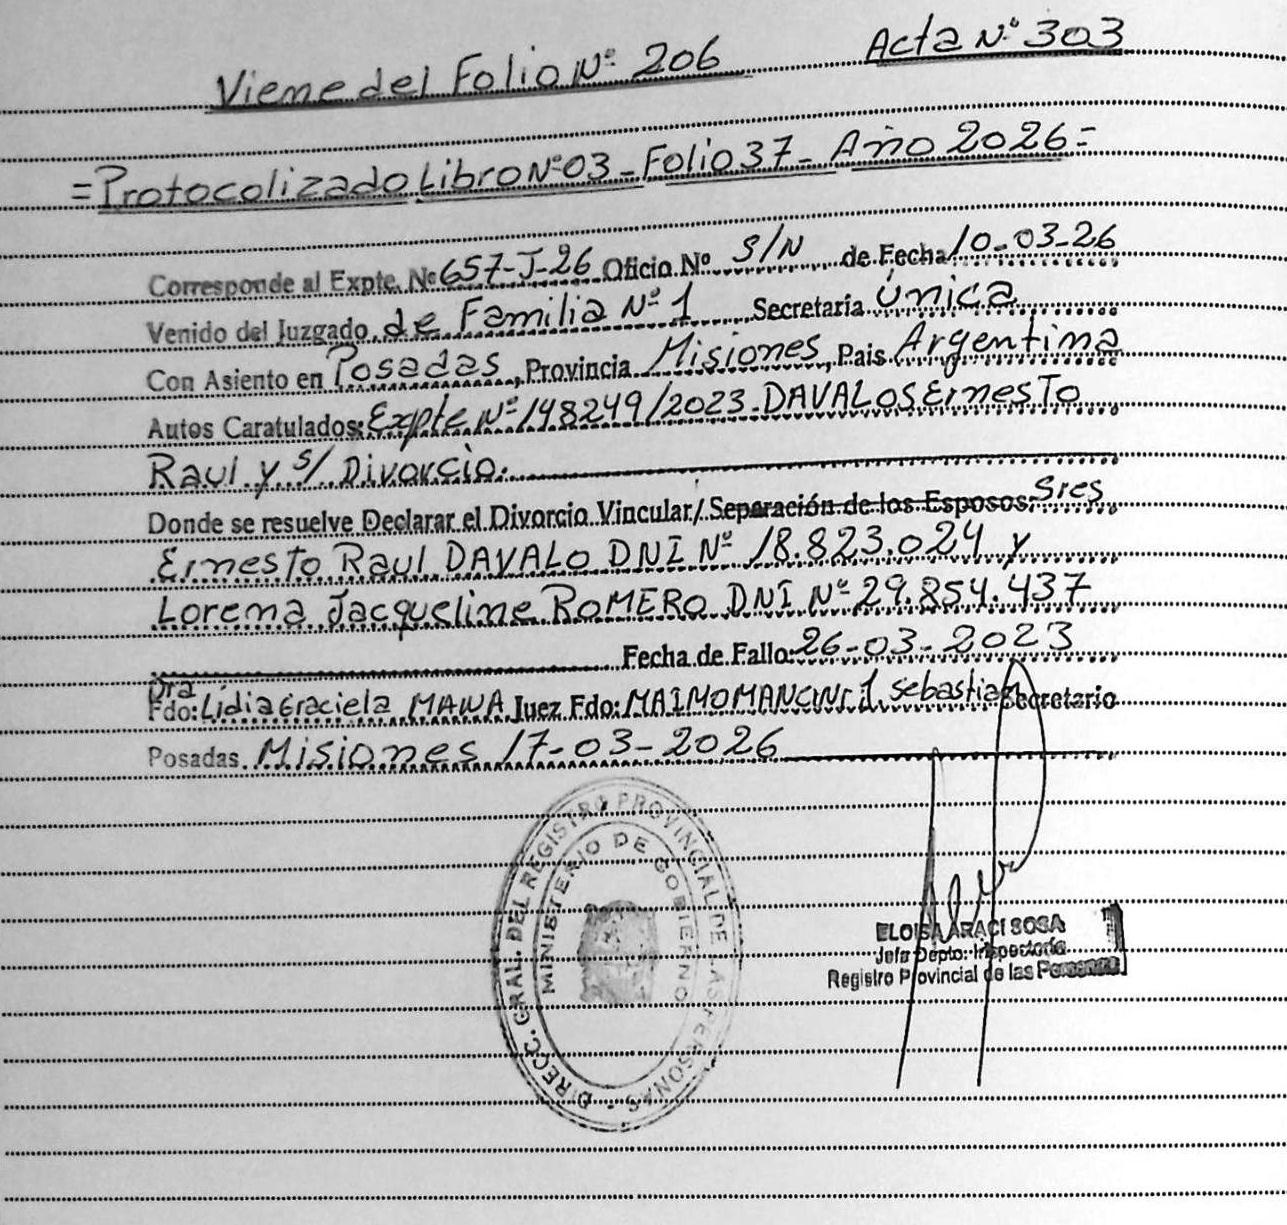 Viene del Folio Nº 206 Acta Nº 303
=Protocolizado Libro Nº 03_Folio 37_Año 2026=
Corresponde al Expte. Nº 657-J-26 Oficio Nº S/N de Fecha 10-03-26
Venido del Juzgado de Familia Nº 1 Secretaria Única
Con Asiento en Posadas, Provincia Misiones, Pais Argentina
Autos Caratulados: Expte Nº 148249/2023. DAVALOS Ernesto
Raul y s/ Divorcio.
Donde se resuelve Declarar el Divorcio Vincular/ Separación de los Esposos: Sres
Ernesto Raul DAVALO DNI Nº 18.823.024 y
Lorena Jacqueline ROMERO DNI Nº 29.854.437
Fecha de Fallo: 26-03-2023
Dra
Fdo: Lidia Graciela Juez Fdo: Sebastian Secretario
Posadas Misiones 17-03-2026
DIRECC. GRAL. DEL REGISTRO PROVINCIAL DE LAS PERSONAS
MINISTERIO DE GOBIERNO
ELOISA ARACI SOSA
Jefa Depto. Inspectoría
Registro Provincial de las Personas